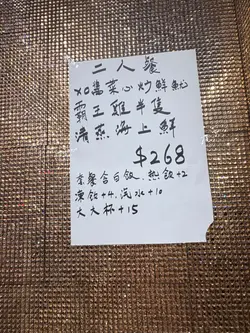 二人餐
XO醬菜心炒鮮魷
霸王雞半隻
清蒸海上鮮
$268
套餐含白飯．熱飲+2
凍飲+4．汽水+10
大大杯+15